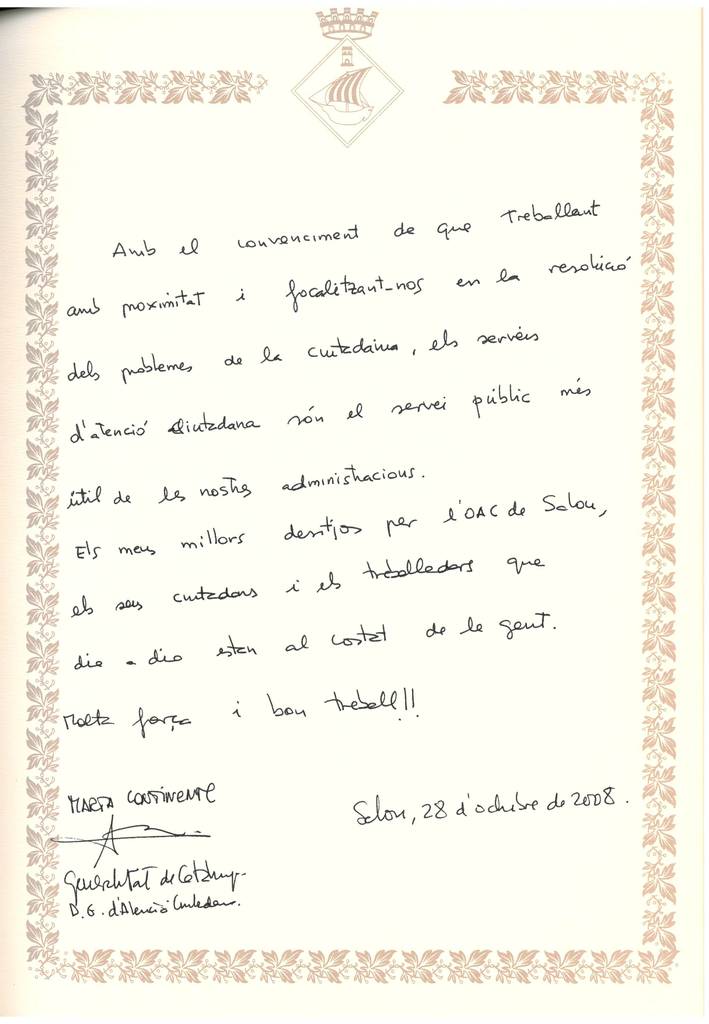 Amb el convenciment de que treballant
amb proximitat i focalitzant-nos en la resolució
dels problemes de la ciutadania, els serveis
d'atenció ciutadana són el servei públic més
útil de les nostres administracions.
Els meus millors desitjos per l'OAC de Salou,
els seus ciutadans i els treballadors que
dia a dia estan al costat de la gent.
Molta força i bon treball!!
MARTA CONTINENTE
Salou, 28 d'octubre de 2008.
Generalitat de Catalunya
D.G. d'Atenció Ciutadana.